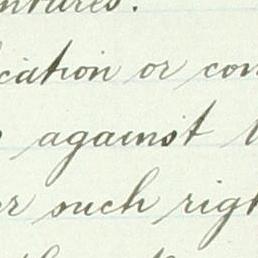 ntures.
cation or con
against
er such righ